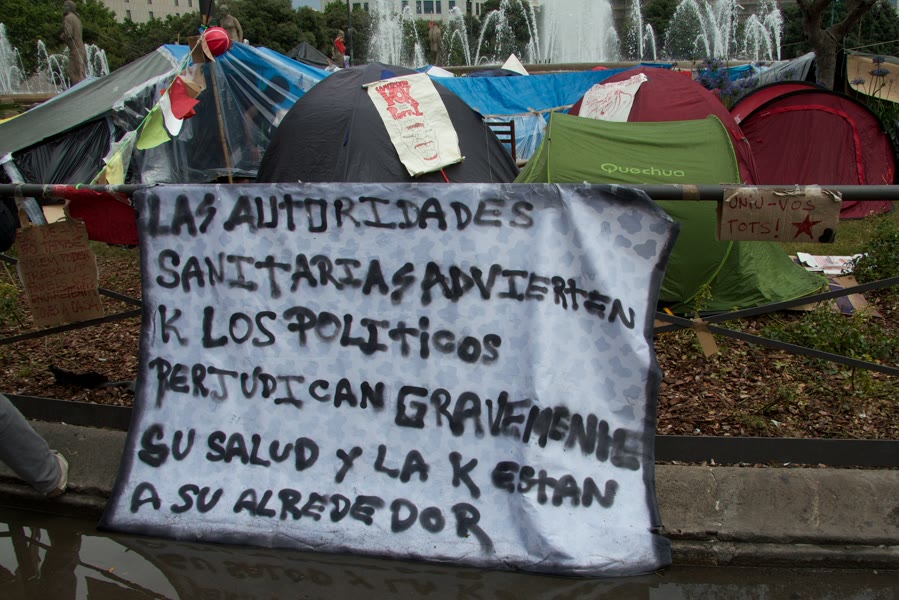 Quechua
UNIU-VOS
TOTS!
LAS AUTORIDADES
SANITARIAS ADVIERTEN
K LOS POLITICOS
PERJUDICAN GRAVEMENTE
SU SALUD Y LA K ESTAN
A SU ALREDEDOR